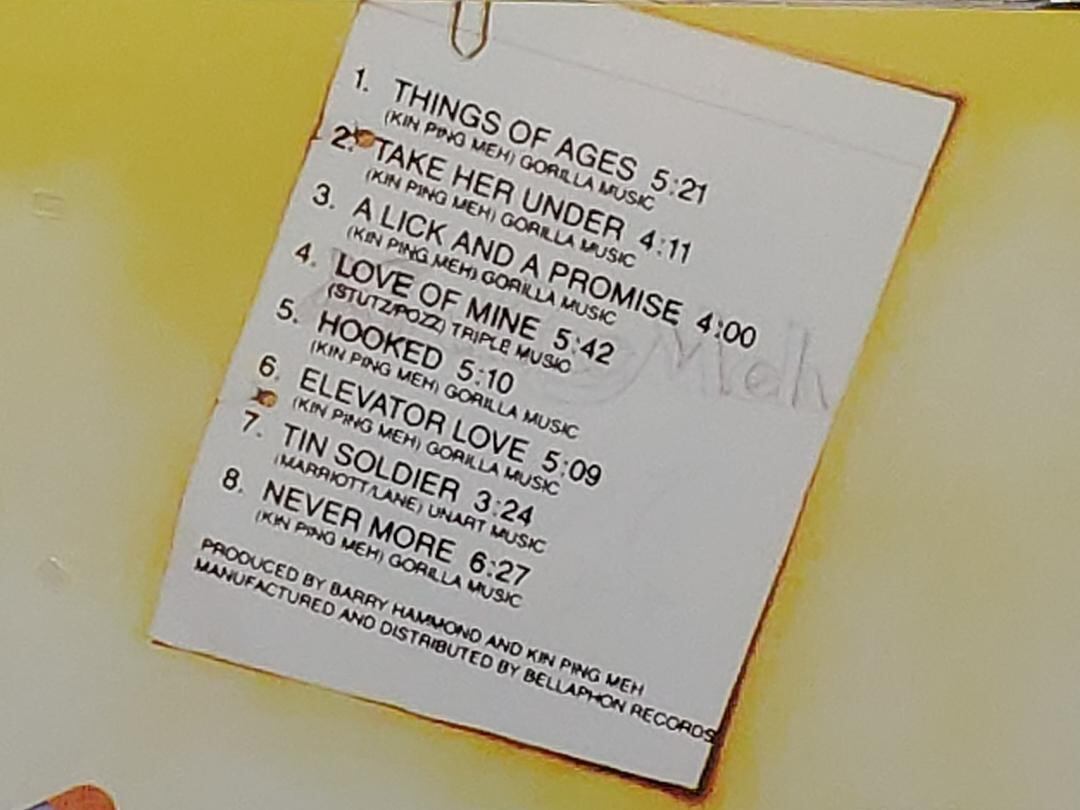 1. THINGS OF AGES 5:21
(KIN PING MEH) GORILLA MUSIC
2. TAKE HER UNDER 4:11
(KIN PING MEH) GORILLA MUSIC
3. A LICK AND A PROMISE 4:00
(KIN PING MEH) GORILLA MUSIC
4. LOVE OF MINE 5:42
(STUTZ/POZZ) TRIPLE MUSIC
5. HOOKED 5:10
(KIN PING MEH) GORILLA MUSIC
6. ELEVATOR LOVE 5:09
(KIN PING MEH) GORILLA MUSIC
7. TIN SOLDIER 3:24
(MARRIOTT/LANE) UNART MUSIC
8. NEVER MORE 6:27
(KIN PING MEH) GORILLA MUSIC
PRODUCED BY BARRY HAMMOND AND KIN PING MEH
MANUFACTURED AND DISTRIBUTED BY BELLAPHON RECORDS
Meh